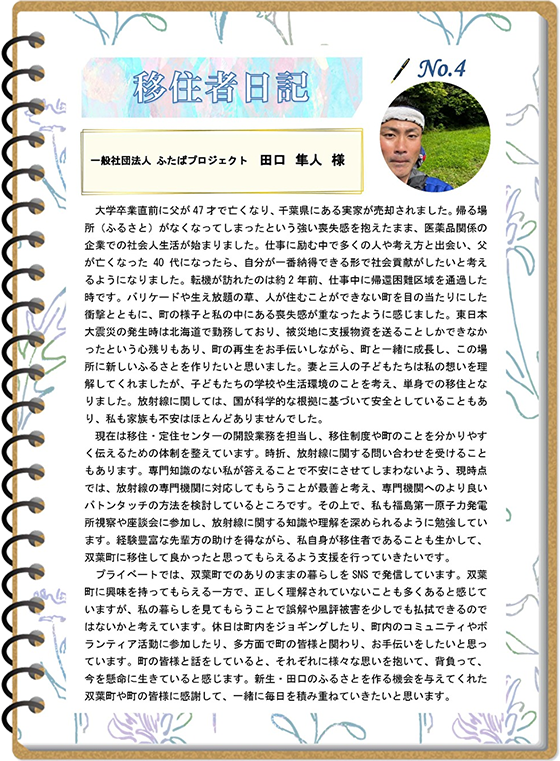 No.4
移住者日記
一般社団法人 ふたばプロジェクト 田口 隼人 様
大学卒業直前に父が47才で亡くなり、千葉県にある実家が売却されました。帰る場
所（ふるさと）がなくなってしまったという強い喪失感を抱えたまま、医薬品関係の
企業での社会人生活が始まりました。仕事に励む中で多くの人や考え方と出会い、父
が亡くなった 40 代になったら、自分が一番納得できる形で社会貢献がしたいと考え
るようになりました。転機が訪れたのは約2年前、仕事中に帰還困難区域を通過した
時です。バリケードや生え放題の草、人が住むことができない町を目の当たりにした
衝撃とともに、町の様子と私の中にある喪失感が重なったように感じました。東日本
大震災の発生時は北海道で勤務しており、被災地に支援物資を送ることしかできなか
ったという心残りもあり、町の再生をお手伝いしながら、町と一緒に成長し、この場
所に新しいふるさとを作りたいと思いました。妻と三人の子どもたちは私の想いを理
解してくれましたが、子どもたちの学校や生活環境のことを考え、単身での移住とな
りました。放射線に関しては、国が科学的な根拠に基づいて安全としていることもあ
り、私も家族も不安はほとんどありませんでした。
現在は移住・定住センターの開設業務を担当し、移住制度や町のことを分かりやす
く伝えるための体制を整えています。時折、放射線に関する問い合わせを受けること
もあります。専門知識のない私が答えることで不安にさせてしまわないよう、現時点
では、放射線の専門機関に対応してもらうことが最善と考え、専門機関へのより良い
バトンタッチの方法を検討しているところです。その上で、私も福島第一原子力発電
所視察や座談会に参加し、放射線に関する知識や理解を深められるように勉強してい
ます。経験豊富な先輩方の助けを得ながら、私自身が移住者であることも生かして、
双葉町に移住して良かったと思ってもらえるよう支援を行っていきたいです。
プライベートでは、双葉町でのありのままの暮らしをSNSで発信しています。双葉
町に興味を持ってもらえる一方で、正しく理解されていないことも多くあると感じて
いますが、私の暮らしを見てもらうことで誤解や風評被害を少しでも払拭できるので
はないかと考えています。休日は町内をジョギングしたり、町内のコミュニティやボ
ランティア活動に参加したり、多方面で町の皆様と関わり、お手伝いをしたいと思っ
ています。町の皆様と話をしていると、それぞれに様々な思いを抱いて、背負って、
今を懸命に生きていると感じます。新生・田口のふるさとを作る機会を与えてくれた
双葉町や町の皆様に感謝して、一緒に毎日を積み重ねていきたいと思います。